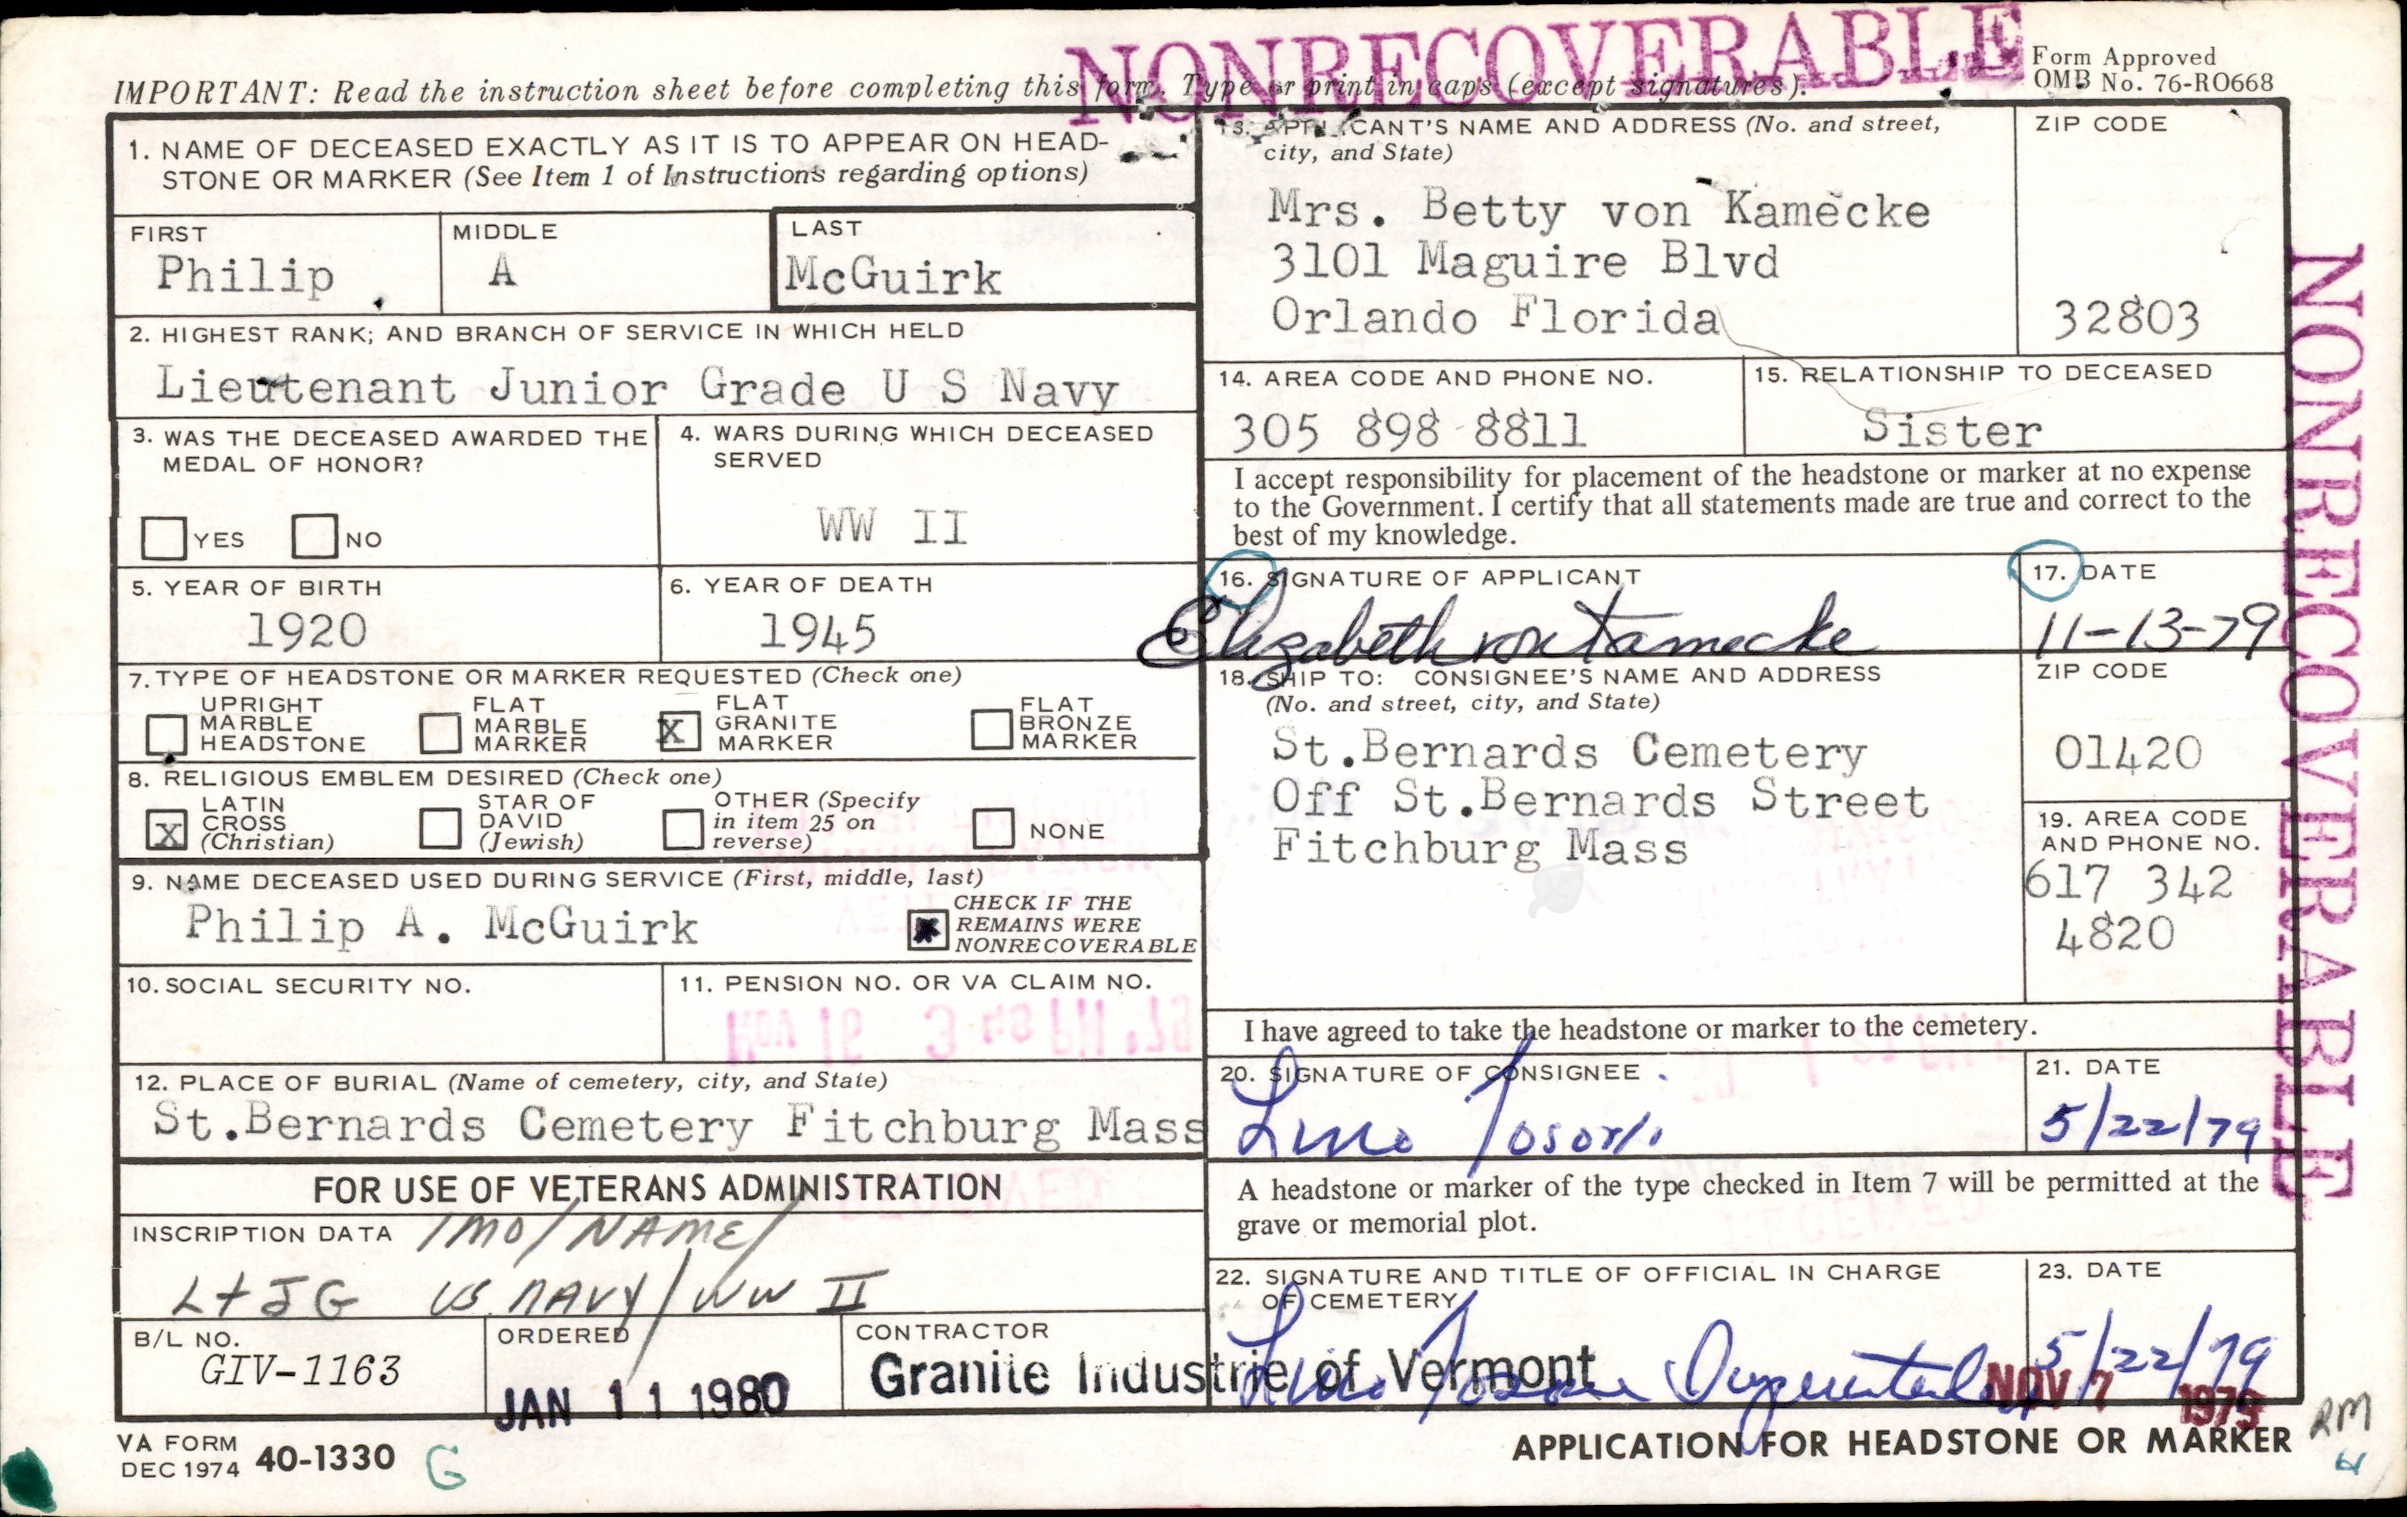 NONRECOVERABLE
Form Approved
OMB No. 76-RO668
IMPORTANT: Read the instruction sheet before completing this form. Type or print in caps (except signatures).
1. NAME OF DECEASED EXACTLY AS IT IS TO APPEAR ON HEAD-
STONE OR MARKER (See Item 1 of Instructions regarding options)
FIRST
MIDDLE
LAST
Philip
A
McGuirk
2. HIGHEST RANK; AND BRANCH OF SERVICE IN WHICH HELD
Lieutenant Junior Grade U S Navy
3. WAS THE DECEASED AWARDED THE
MEDAL OF HONOR?
YES
NO
4. WARS DURING WHICH DECEASED
SERVED
WW II
5. YEAR OF BIRTH
1920
6. YEAR OF DEATH
1945
7. TYPE OF HEADSTONE OR MARKER REQUESTED (Check one)
UPRIGHT
MARBLE
HEADSTONE
FLAT
MARBLE
MARKER
X
FLAT
GRANITE
MARKER
FLAT
BRONZE
MARKER
8. RELIGIOUS EMBLEM DESIRED (Check one)
X
LATIN
CROSS
(Christian)
STAR OF
DAVID
(Jewish)
OTHER (Specify
in item 25 on
reverse)
NONE
9. NAME DECEASED USED DURING SERVICE (First, middle, last)
Philip A. McGuirk
CHECK IF THE
REMAINS WERE
NONRECOVERABLE
10. SOCIAL SECURITY NO.
11. PENSION NO. OR VA CLAIM NO.
12. PLACE OF BURIAL (Name of cemetery, city, and State)
St.Bernards Cemetery Fitchburg Mass
FOR USE OF VETERANS ADMINISTRATION
INSCRIPTION DATA
IMO/NAME/
Lt JG US NAVY/WW II
B/L NO.
GIV-1163
ORDERED
JAN 11 1980
CONTRACTOR
Granite Industrie of Vermont
VA FORM
DEC 1974
40-1330
G
13. APPLICANT'S NAME AND ADDRESS (No. and street,
city, and State)
ZIP CODE
Mrs. Betty von Kamecke
3101 Maguire Blvd
Orlando Florida
32803
14. AREA CODE AND PHONE NO.
305 898 8811
15. RELATIONSHIP TO DECEASED
Sister
I accept responsibility for placement of the headstone or marker at no expense
to the Government. I certify that all statements made are true and correct to the
best of my knowledge.
16. SIGNATURE OF APPLICANT
Elizabeth von Kamecke
17. DATE
11-13-79
18. SHIP TO: CONSIGNEE'S NAME AND ADDRESS
(No. and street, city, and State)
ZIP CODE
St.Bernards Cemetery
Off St.Bernards Street
Fitchburg Mass
01420
19. AREA CODE
AND PHONE NO.
617 342
4820
I have agreed to take the headstone or marker to the cemetery.
20. SIGNATURE OF CONSIGNEE
21. DATE
5/22/79
A headstone or marker of the type checked in Item 7 will be permitted at the
grave or memorial plot.
22. SIGNATURE AND TITLE OF OFFICIAL IN CHARGE
OF CEMETERY
23. DATE
5/22/79
NOV 7 1979
APPLICATION FOR HEADSTONE OR MARKER
RM
NONRECOVERABLE